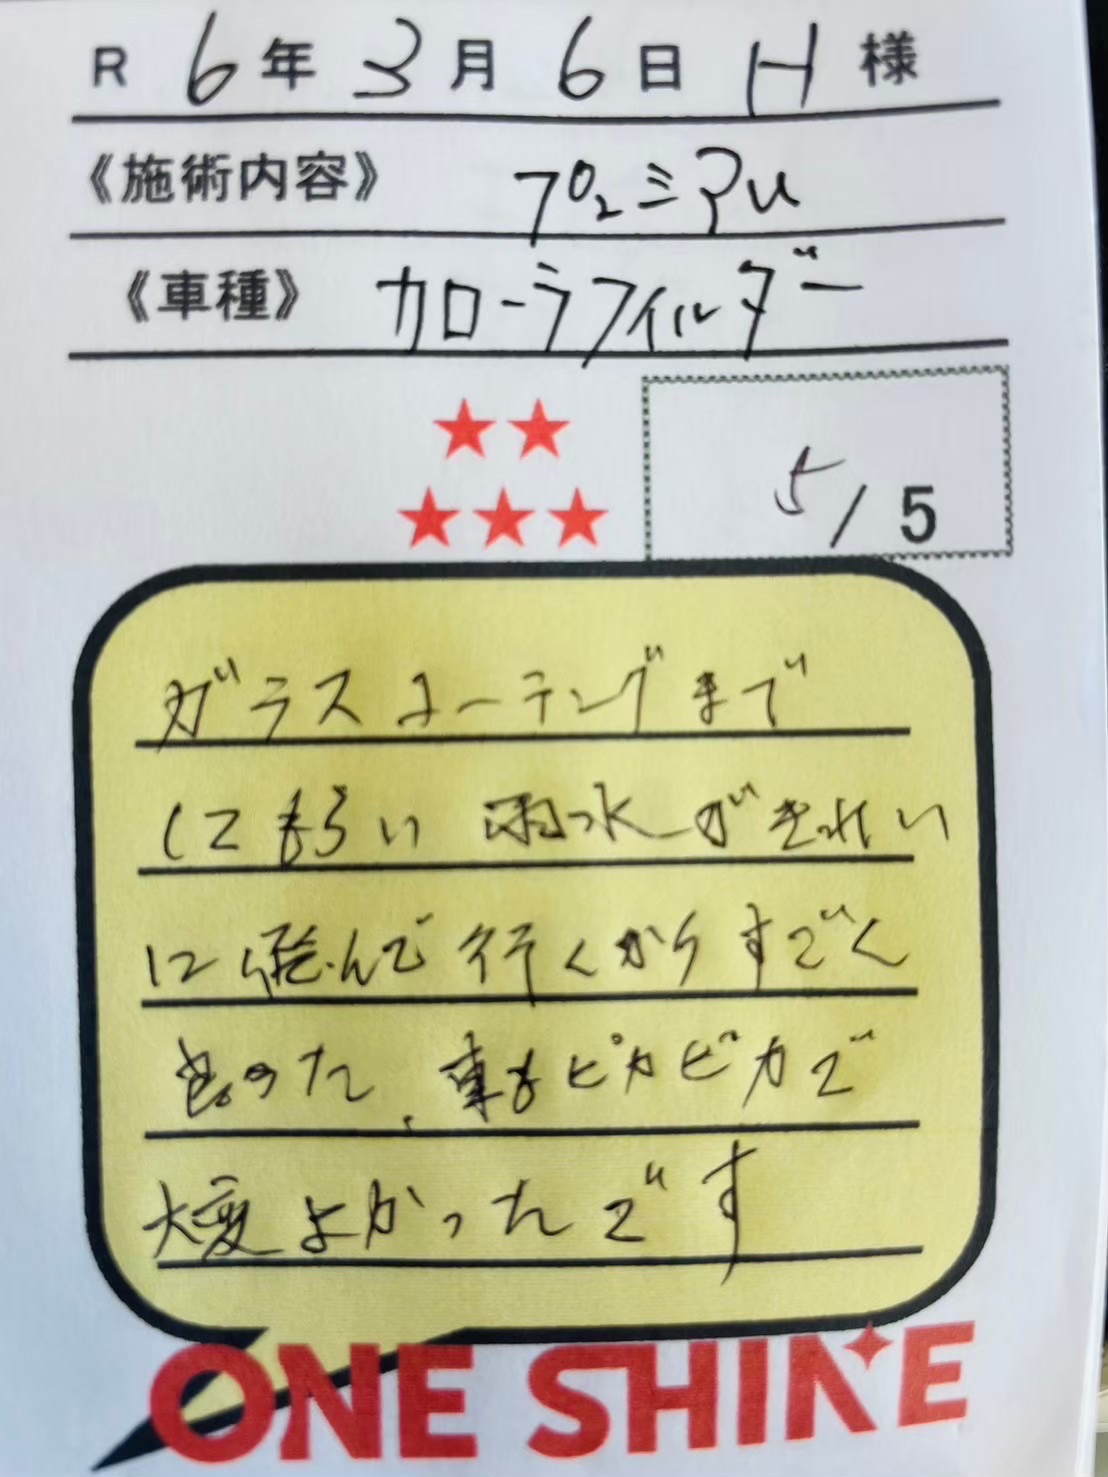 R 6年 3月 6日 H 様
《施術内容》 プレミアム
《車種》 カローラフィルダー
5/5
ガラスコーティングまで
してもらい 雨水がきれい
に飛んで行くからすごく
良かった、車もピカピカで
大変よかったです
ONE SHINE